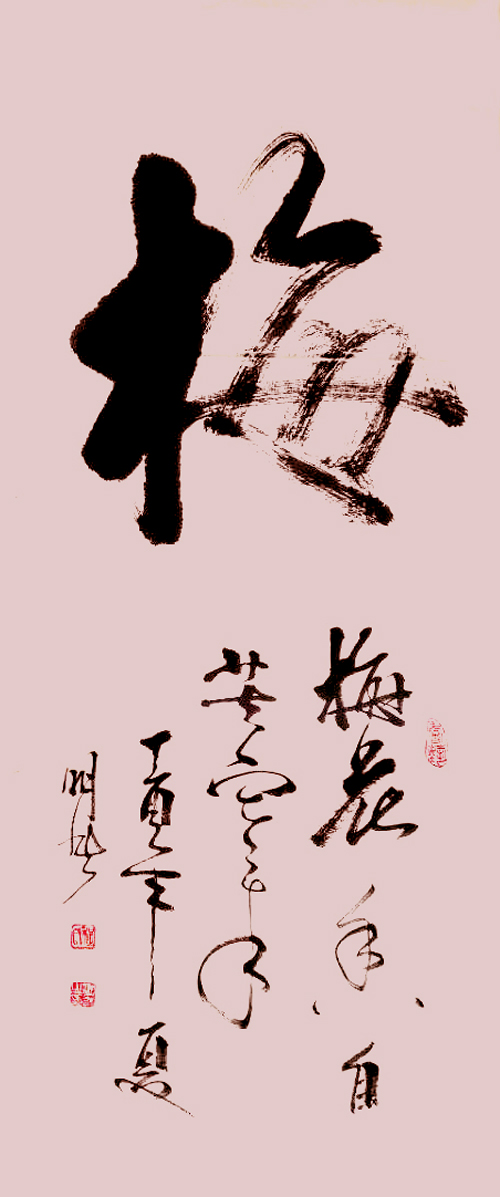 梅
梅花香自
苦寒来
丁酉年夏
明